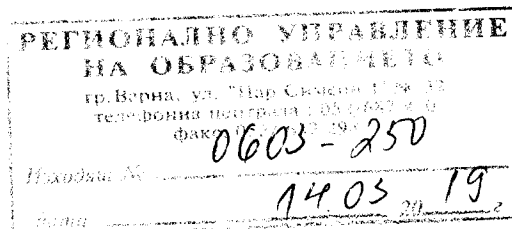 РЕГИОНАЛНО УПРАВЛЕНИЕ
НА ОБРАЗОВАНИЕТО
гр. Варна, ул. "Цар Симеон I" № 32
телефонна централа
факс
0603-250
Изходящ №
14.03 2019 г.
дата